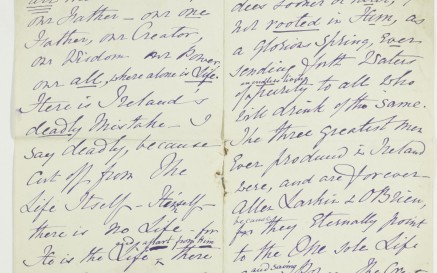 are
our Father – our one
Father, our Creator,
our Wisdom our Power,
our all, where alone is Life.
Here is Ireland's
deadly mistake – I
say deadly, because
cut off from The
Life Itself –
there is no Life – for
and apart from Him
He is the Life there
not rooted in Him, as
a glorious Spring, Ever
sending forth Waters
of purity to all who
will drink of the same.
The three greatest men
Ever produced in Ireland
were, and are forever
Allen Larkin & O'Brien,
because
for they Eternally point
to the One sole Life
and saving